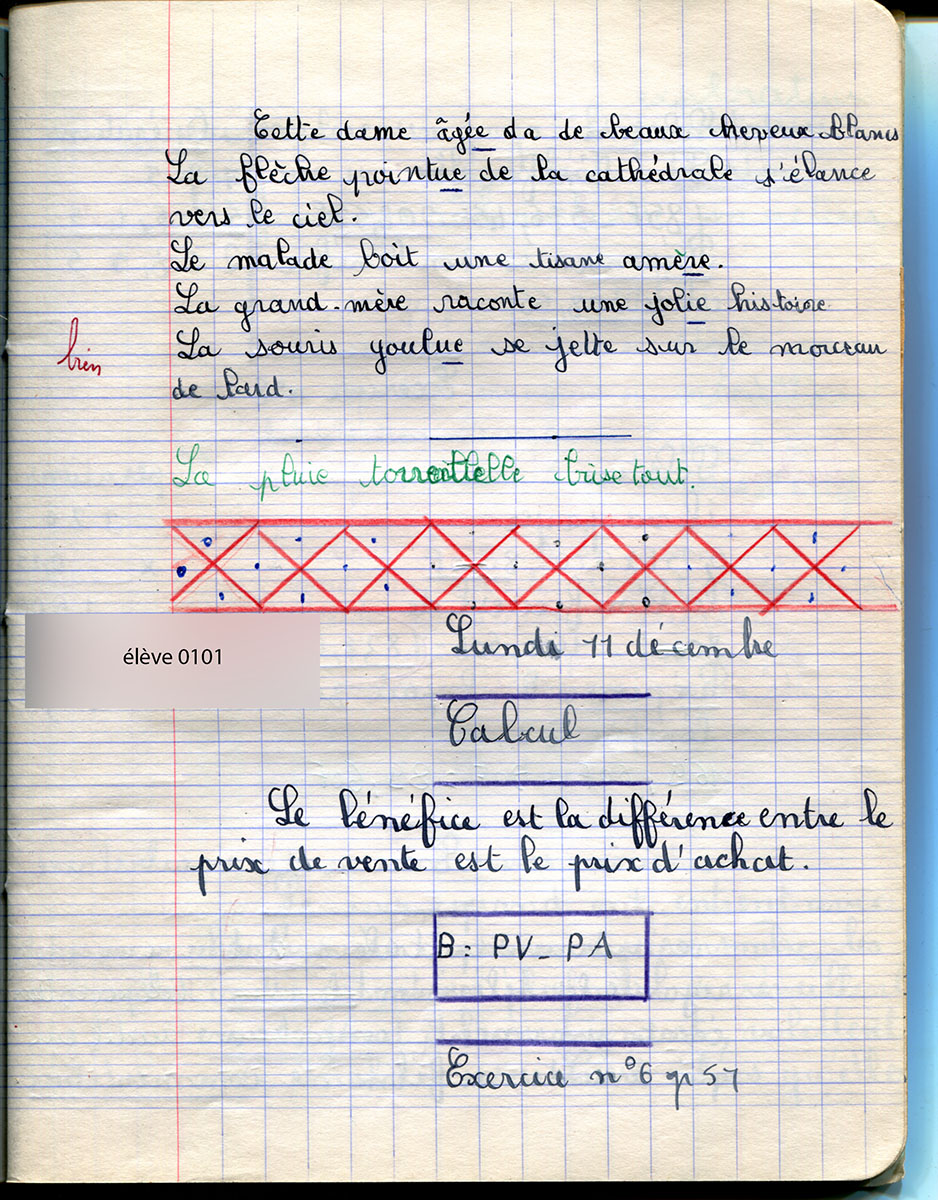 Cette dame âgée da de beaux cheveux blancs
La flèche pointue de la cathédrale s'élance
vers le ciel.
Le malade boit une tisane amère.
La grand-mère raconte une jolie histoire
bien
La souris goulue se jette sur le morceau
de lard.
La pluie torrentielle brise tout.
élève 0101
Lundi 11 décembre
Calcul
Le bénéfice est la différence entre le
prix de vente est le prix d'achat.
B = PV - PA
Exercice n°6 p 57